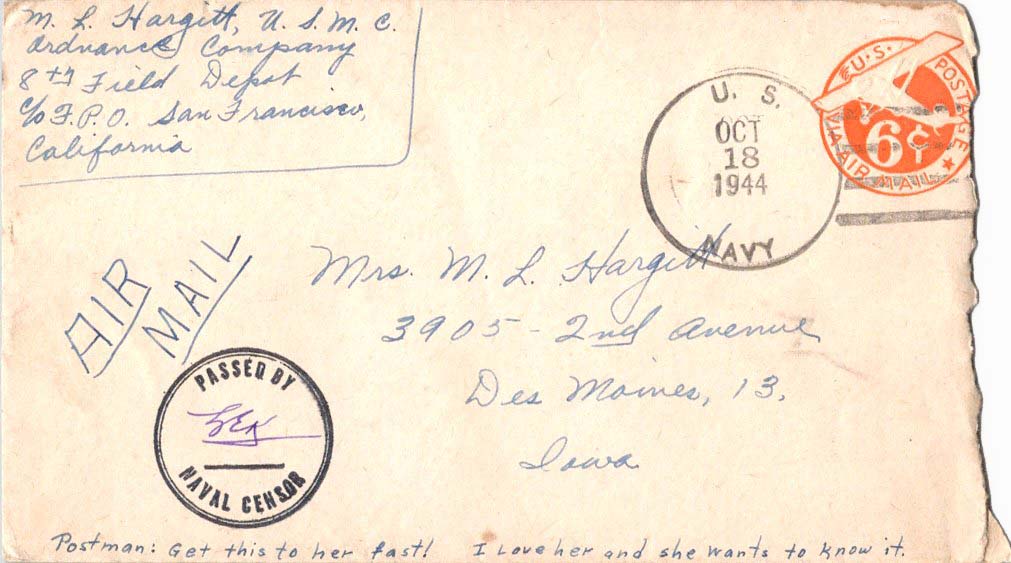 M. L. Hargitt, U. S. M. C.
Ordnance Company
8th Field Depot
c/o F.P.O. San Francisco,
California
U. S.
OCT
18
1944
NAVY
U.S. POSTAGE
6¢
VIA AIR MAIL
AIR
MAIL
Mrs. M. L. Hargitt
3905 - 2nd Avenue
Des Moines, 13.
Iowa
PASSED BY
NAVAL CENSOR
Postman: Get this to her fast! I Love her and she wants to know it.